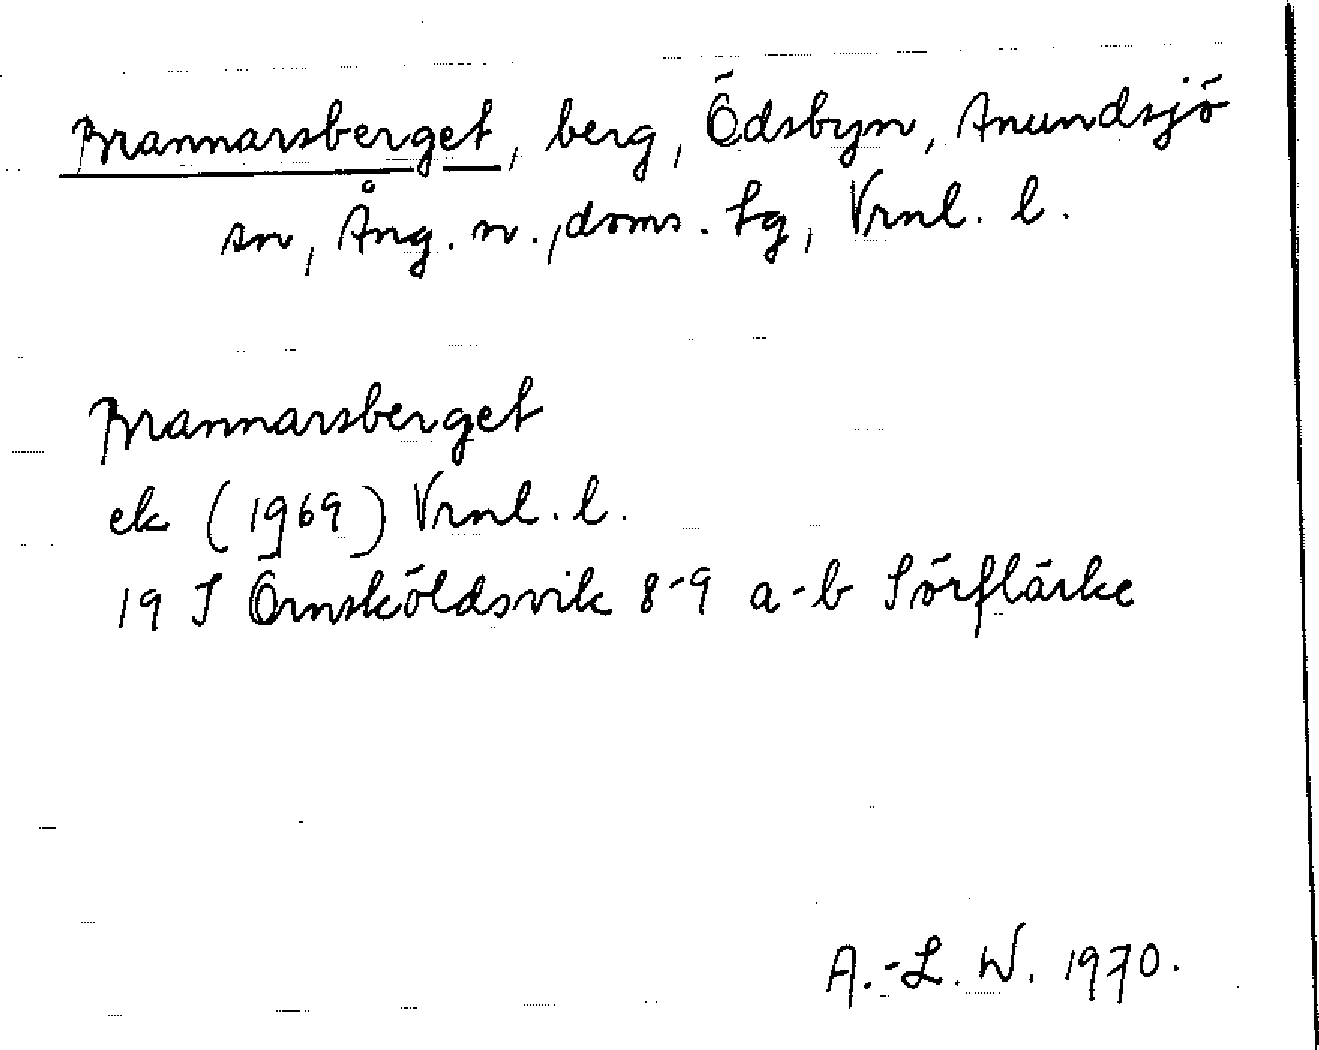 Brannarsberget, berg, Ödsbyn, Anundsjö
sn, Ång. n., doms. lg, Vrnl. l.
Brannarsberget
ek (1969) Vrnl. l.
19 J Örnsköldsvik 8-9 a-b Sörflärke
A.-L. W. 1970.